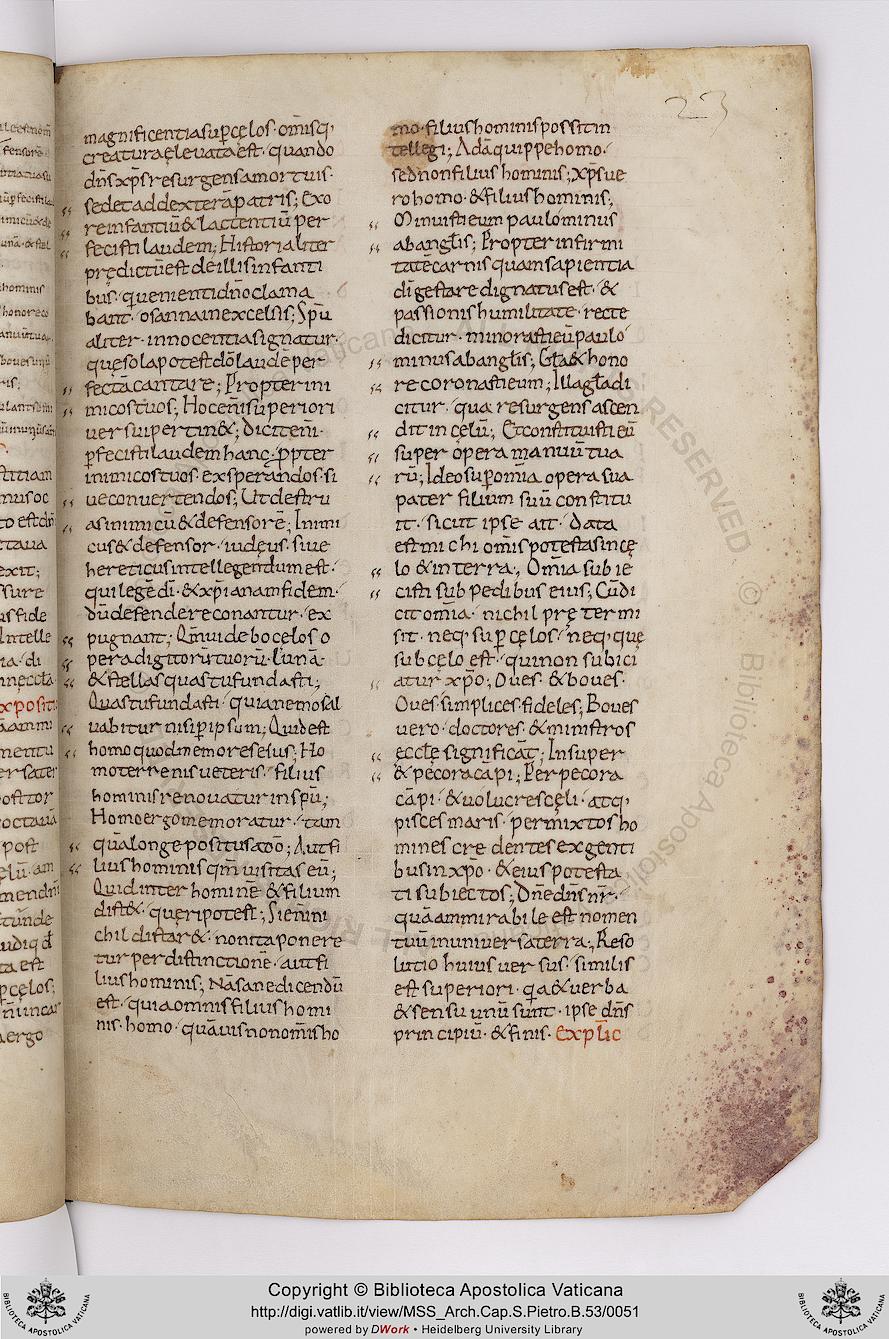 23
magnificentia sup̄ cęlos · om̄isq;
creatura elevata est · quando
dn̄s xp̄s resurgens a mortuis ·
sedet ad dexterā patris; Exo
re infantiū & lactentiū per
fecisti laudem; Historialiter
prędictū est de illis infanti
bus · qui venienti dn̄o clama
bant · osanna in excelsis; Spū
aliter · innocentia signatur ·
quę sola potest dō laudē per
fectā cantare; Propter ini
micos tuos; Hoc en̄i superiori
versui pertin&; dicit en̄i ·
p̄fecisti laudem hanc · p̄pter
inimicos tuos · ex sperandos · si
ve convertendos; Ut destru
as inimicū & defensorē; Inimi
cus & defensor · iudęus · sive
hereticus intellegendum est ·
qui legē dī · & xp̄ianam fidem ·
dū defendere conantur · ex
pugnant; Qm̄ videbo cęlos o
pera digitorū tuorū · lunā
& stellas quas tu fundasti;
Quas tu fundasti · quia nemo sal
vabitur nisi p̄ ipsum; Quid est
homo quod memores eius; Ho
mo terrenis veteris · filius
hominis renovatur in spū;
Homo ergo memoratur · tam
quā longe positus a dō; Aut fi
lius hominis qm̄ visitas eū;
Quid inter hominē & filium
dist& · queri potest; Si en̄i ni
chil distar& · non ita ponere
tur per distinctionē · aut fi
lius hominis; Nā sane dicendū
est · quia omnis filius homi
nis · homo · quāvis non om̄is ho
mo · filius hominis possit in
tellegi; Adā quippe homo ·
sed non filius hominis; xp̄s ve
ro homo · & filius hominis;
Minuisti eum paulo minus
ab angl̄is; Propter infirmi
tatē carnis quam sapientia
dī gestare dignatus est · &
passionis humilitate · recte
dicitur · minorasti eū paulo
minus ab angl̄is; Gl̄a & hono
re coronasti eum; Illa gl̄a di
citur · qua resurgens ascen
dit in cęlū; Et constituisti eū
super opera manuū tua
rū; Ideo sup̄ om̄ia opera sua
pater filium suū constitu
it · sicut ipse ait · Data
est michi om̄is potestas in cę
lo & in terra; Om̄ia subie
cisti sub pedibus eius; Cū di
cit om̄ia · nichil prętermi
sit · neq; sup̄ cęlos · neq; quę
sub cęlo est · qui non subici
atur xp̄o; Oves · & boves ·
Oves simplices fideles; Boves
vero · doctores · & ministros
eccl̄e significāt; Insuper
& pecora capi; Per pecora
cāpi · & volucres cęli · atq;
pisces maris · permixtos ho
mines credentes ex genti
bus in xp̄o · & eius potesta
ti subiectos; Dn̄e dn̄s nr̄ ·
quā ammirabile est nomen
tuū in universa terra; Reso
lutio huius versus · similis
est superiori · q̄a & verba
& sensu unū sunt · ipse dn̄s
principiū · & finis · Explic̄
Copyright © Biblioteca Apostolica Vaticana
http://digi.vatlib.it/view/MSS_Arch.Cap.S.Pietro.B.53/0051
powered by DWork • Heidelberg University Library